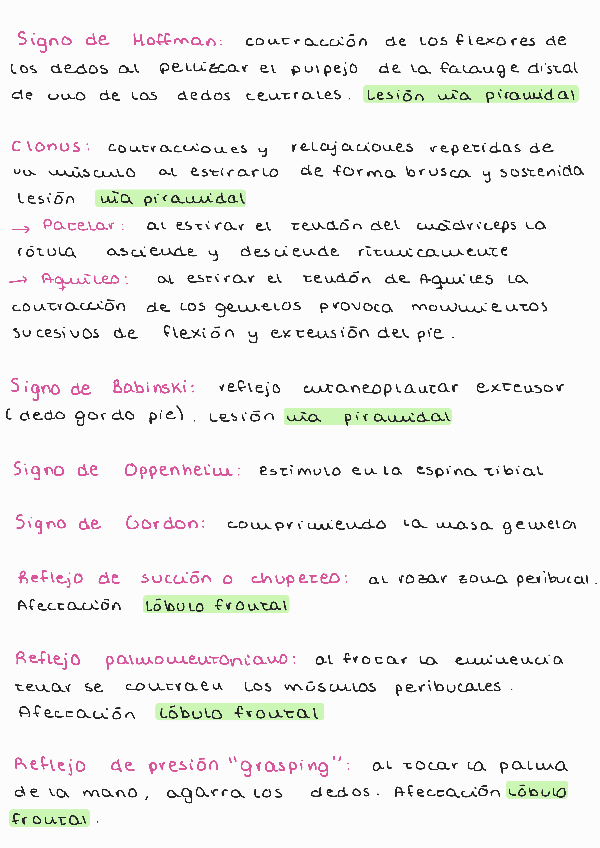 Signo de Hoffman: contracción de los flexores de
los dedos al pellizcar el pulpejo de la falange distal
de uno de los dedos centrales. Lesión vía piramidal
Clonus: contracciones y relajaciones repetidas de
un músculo al estirarlo de forma brusca y sostenida
Lesión vía piramidal
→ Patelar: al estirar el tendón del cuádriceps la
rótula asciende y desciende rítmicamente
→ Aquíleo: al estirar el tendón de Aquiles la
contracción de los gemelos provoca movimientos
sucesivos de flexión y extensión del pie.
Signo de Babinski: reflejo cutaneoplantar extensor
(dedo gordo pie). Lesión vía piramidal
Signo de Oppenheim: estímulo en la espina tibial
Signo de Gordon: comprimiendo la masa gemelar
Reflejo de succión o chupeteo: al rozar zona peribucal.
Afectación lóbulo frontal
Reflejo palmomentoniano: al frotar la eminencia
tenar se contraen los músculos peribucales.
Afectación lóbulo frontal
Reflejo de presión "grasping": al tocar la palma
de la mano, agarra los dedos. Afectación lóbulo
frontal.